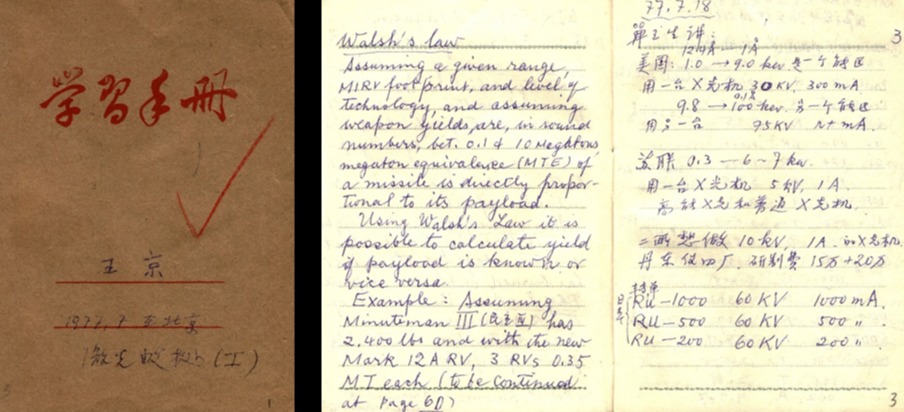 学习手册
王京
1977.7 在北京
(I)
1
Walsh's law
Assuming a given range,
MIRV footprint, and level of
technology, and assuming
weapon yields, are, in round
numbers, bet. 0.1 & 10 Megatons
megaton equivalence (MTE) of
a missile is directly propor-
tional to its payload.
Using Walsh's Law it is
possible to calculate yield
if payload is known or
vice versa.
Example: Assuming
Minuteman III (民兵III) has
2,400 lbs and with the new
Mark 12A RV, 3 RVs 0.35
MT each (to be continued
at Page 60)
77.7.18
3
12.4Å — 1Å
美国: 1.0 → 9.0 kev 是一个能区
用一台X光机 30KV, 300 mA
9.8 → 100 kev. 另一个能区
用另一台 95KV n+ mA.
苏联 0.3 — 6~7 kev
用一台X光机 5KV, 1A.
高能X光和普通X光机.
二所想做 10kV, 1A. 的X光机.
丹东仪四厂. 研制费 15万+20万
日本
RU-1000 60KV 1000mA.
RU-500 60KV 500 〃
RU-200 60KV 200 〃
3